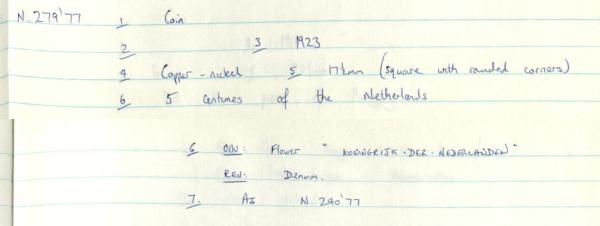 N. 279'77 1 Coin
2 3 1923
4 Copper-nickel 5 17½mm (square with rounded corners)
6 5 centimes of the Netherlands
6 OBV: Flower " KONINGRIJK · DER · NEDERLANDEN "
REV: Denom.
7. As N. 240'77